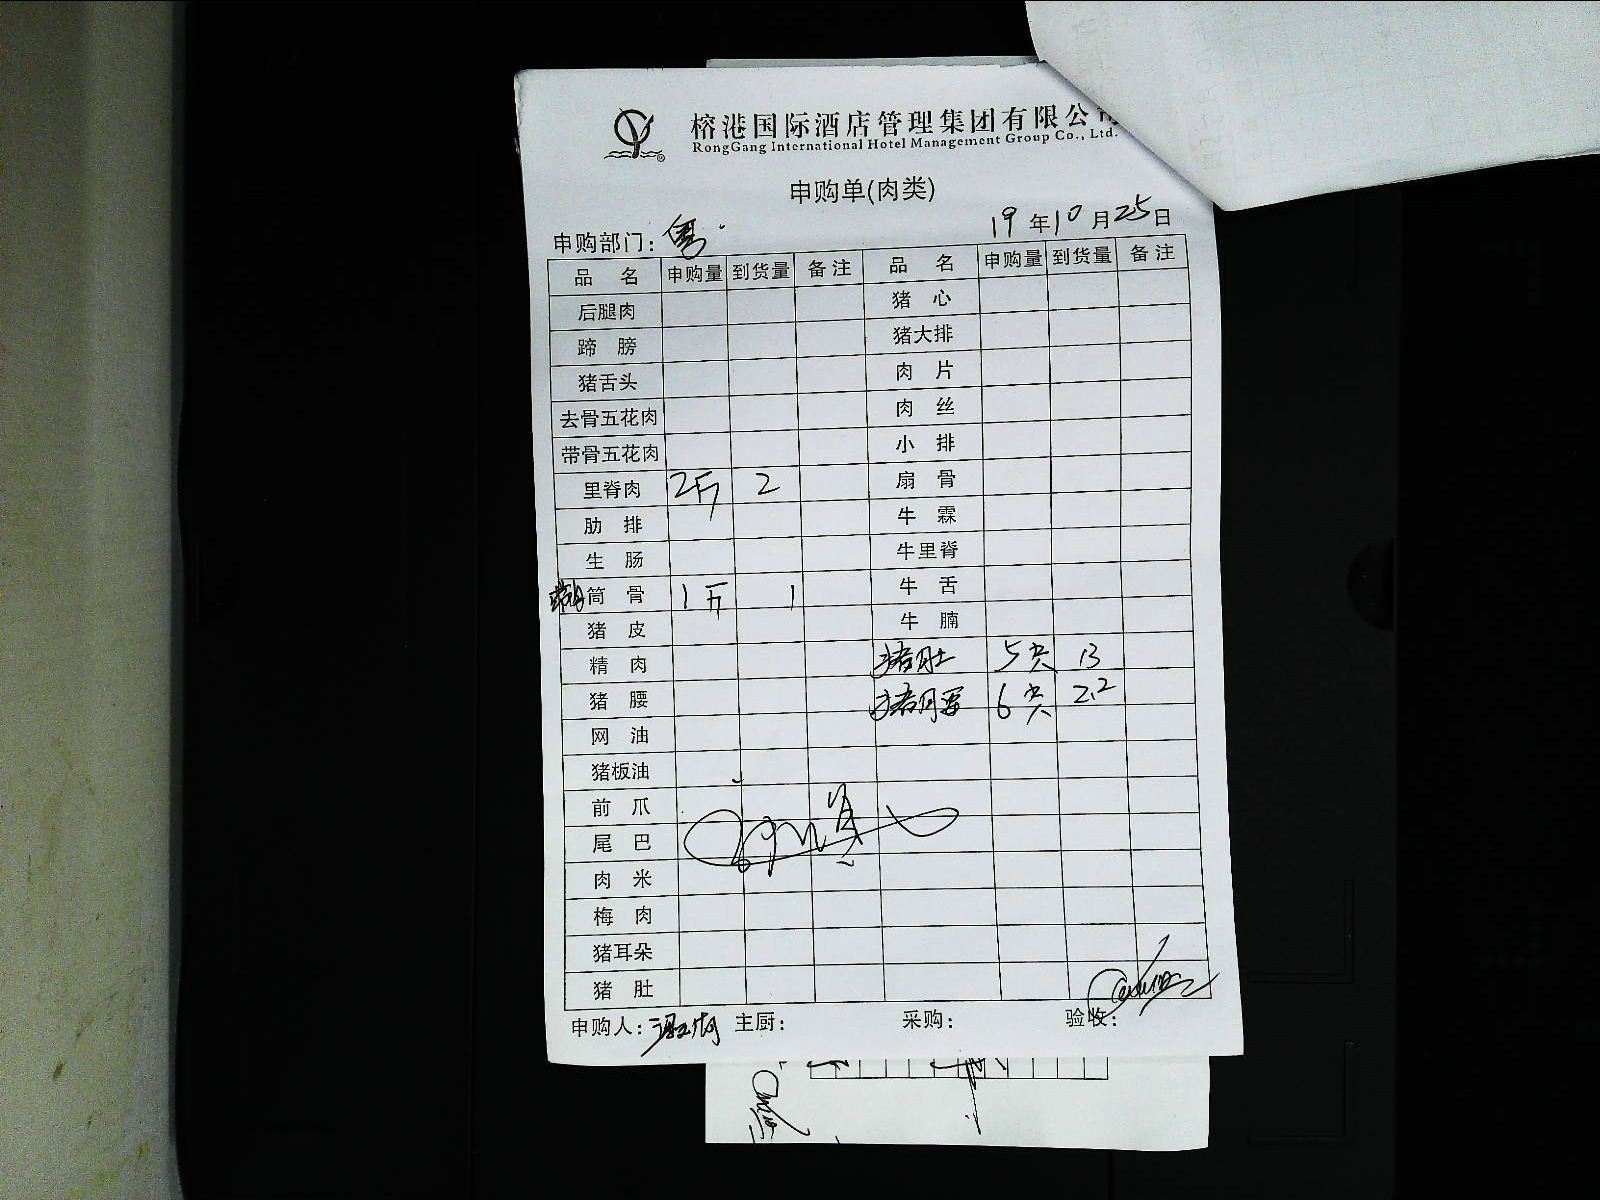 榕港国际酒店管理集团有限公司
RongGang International Hotel Management Group Co., Ltd.
申购单(肉类)
申购部门: 粤 19年10月25日
品名 申购量 到货量 备注 品名 申购量 到货量 备注
后腿肉 猪心
蹄膀 猪大排
猪舌头 肉片
去骨五花肉 肉丝
带骨五花肉 小排
里脊肉 2斤 2 扇骨
肋排 牛霖
生肠 牛里脊
筒骨 1斤 1 牛舌
猪皮 牛腩
精肉 猪肚 5只 13
猪腰 猪腰 6只 2.2
网油
猪板油
前爪
尾巴
肉米
梅肉
猪耳朵
猪肚
申购人: 主厨: 采购: 验收: